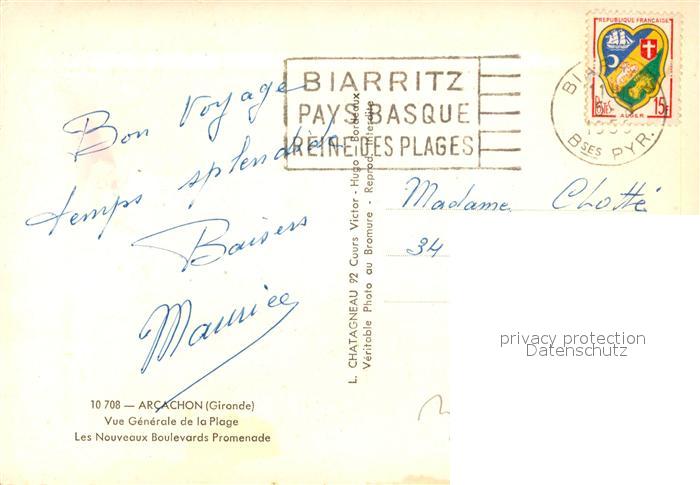 Bon Voyage
temps splendide
Baisers
Maurice
10 708 — ARCACHON (Gironde)
Vue Générale de la Plage
Les Nouveaux Boulevards Promenade
L. CHATAGNEAU 92 Cours Victor - Hugo - Bordeaux
Véritable Photo au Bromure - Reprod. interdite
BIARRITZ
PAYS BASQUE
REINE DES PLAGES
REPUBLIQUE FRANÇAISE
POSTES
15F
ALGER
BI
Bses PYR.
Madame Chotté
34
privacy protection
Datenschutz